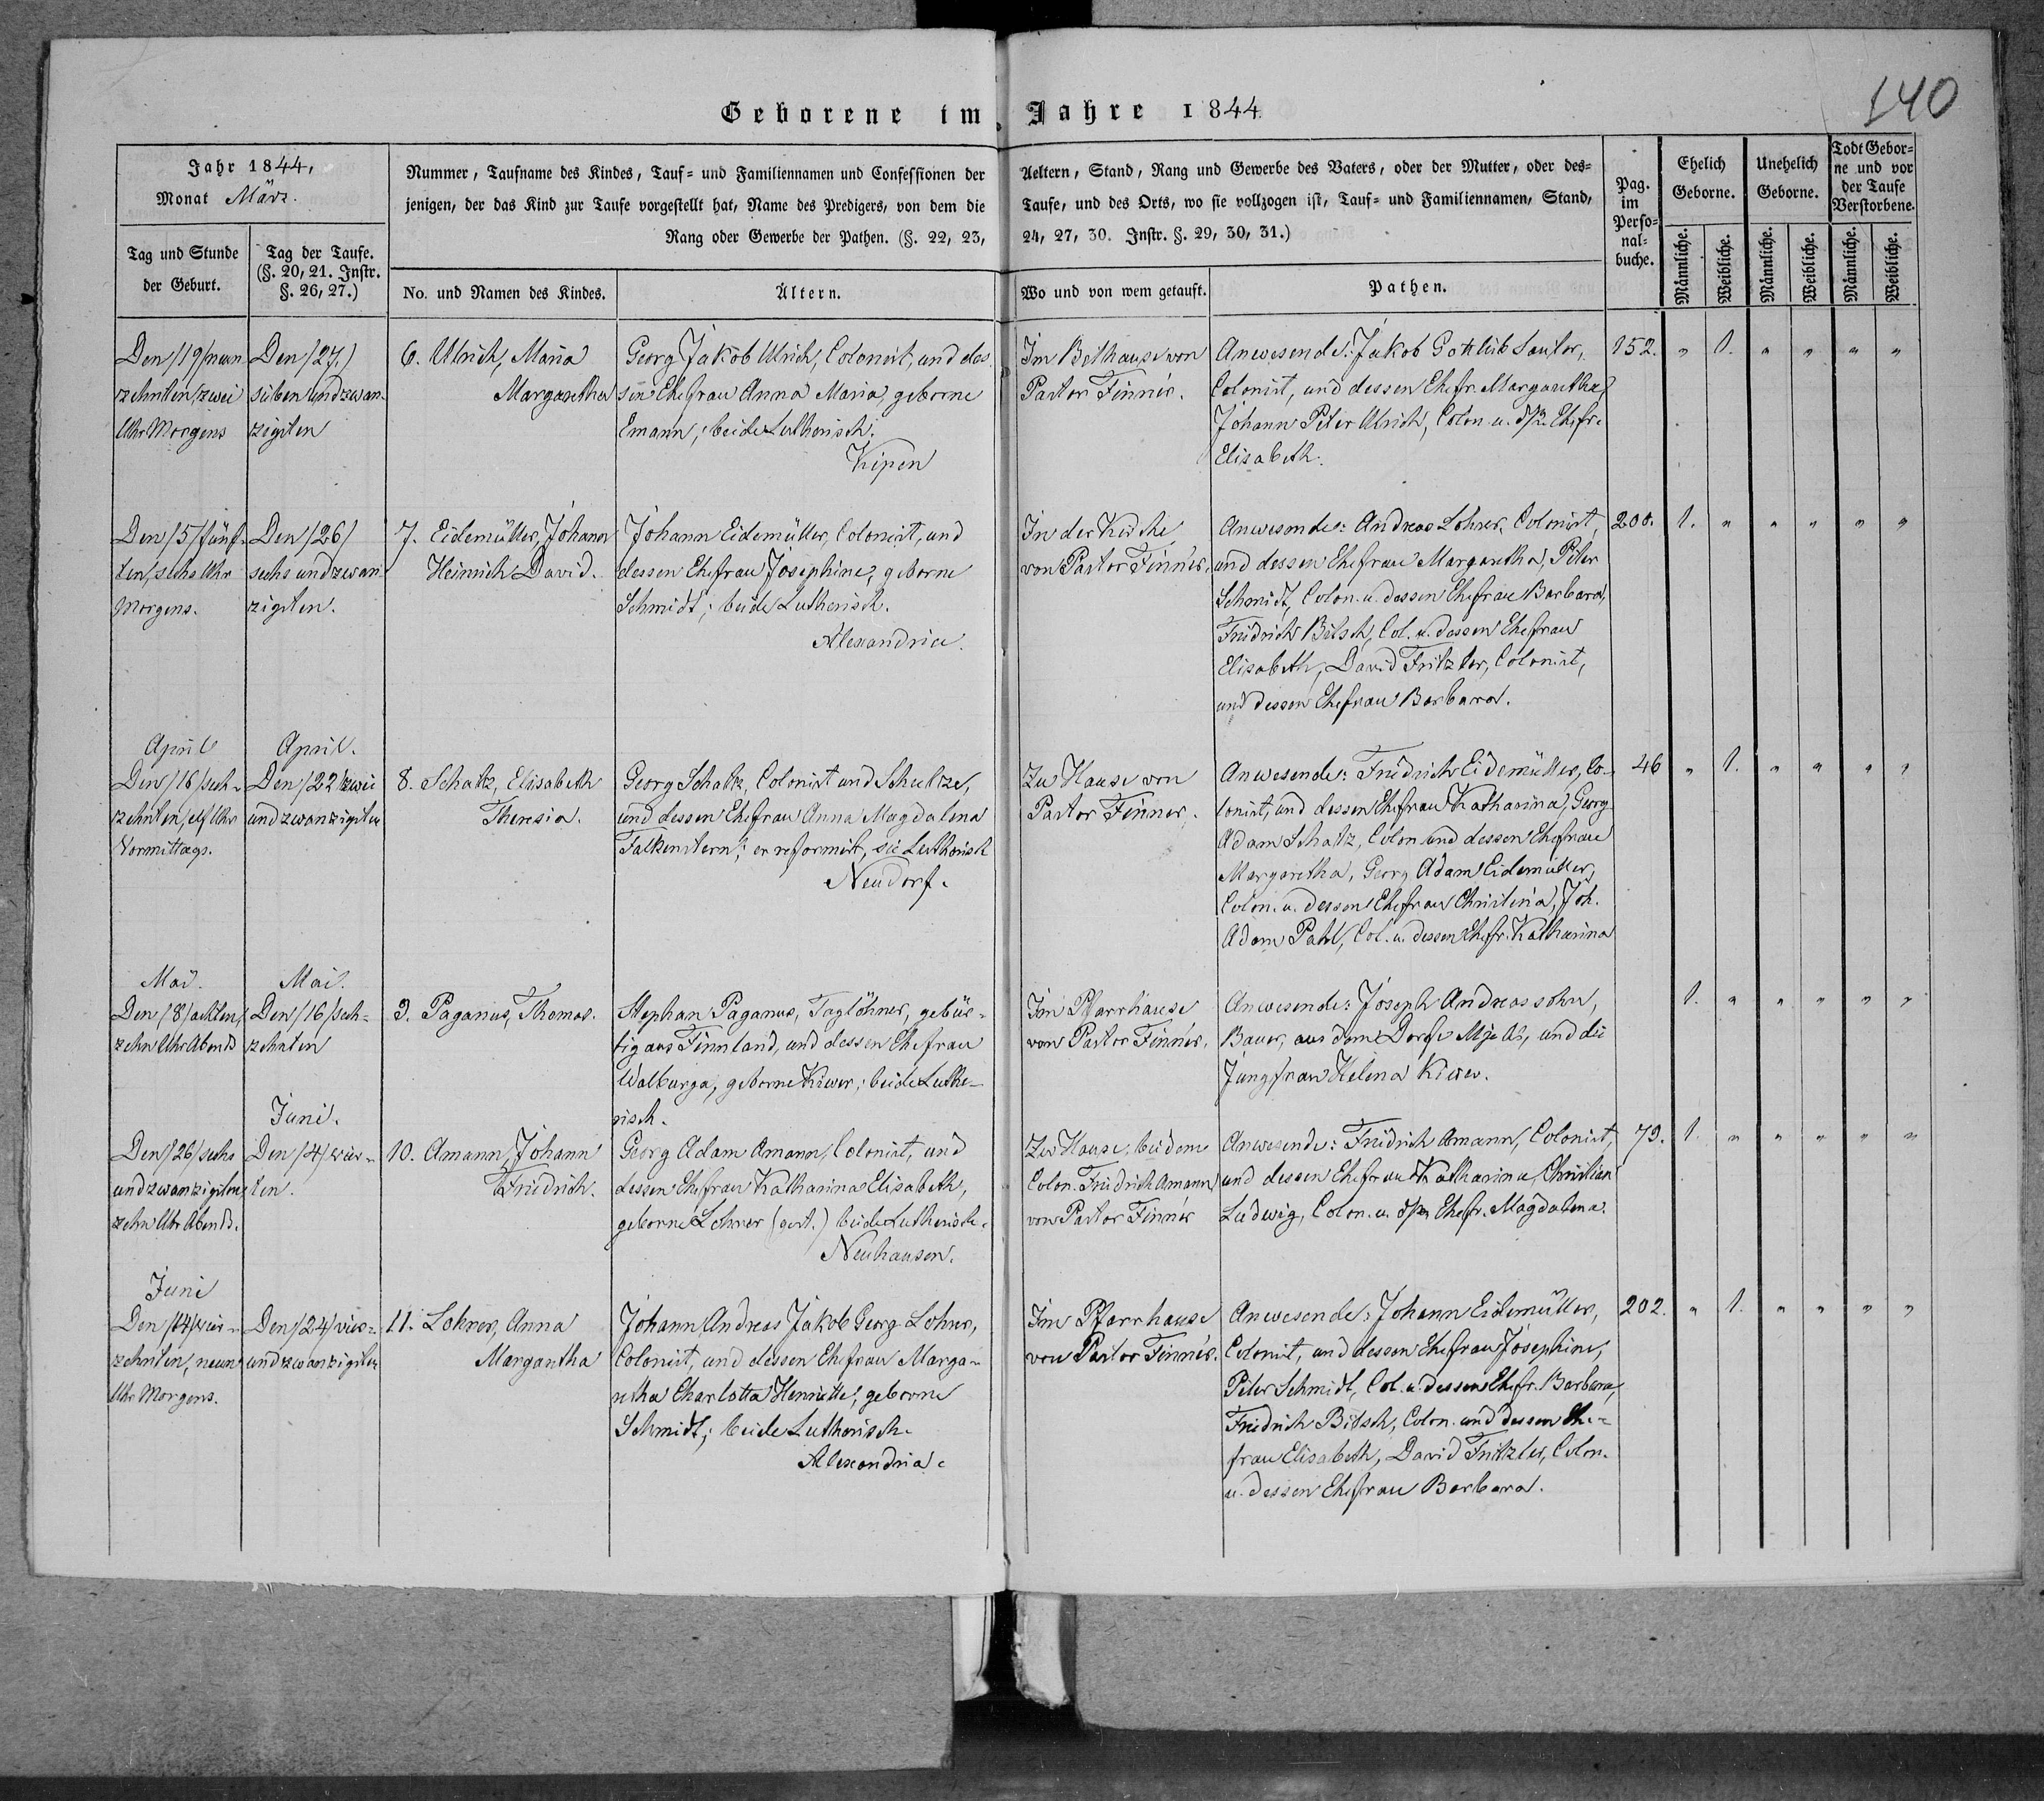 140
Geborene im Jahre 1844
Jahr 1844,
Monat März.
Tag und Stunde
der Geburt.
Tag der Taufe.
(§. 20, 21. Instr.
§. 26, 27.)
Nummer, Taufname des Kindes, Tauf= und Familiennamen und Confessionen der Aeltern, Stand, Rang und Gewerbe des Vaters, oder der Mutter, oder des=
jenigen, der das Kind zur Taufe vorgestellt hat, Name des Predigers, von dem die Taufe, und des Orts, wo sie vollzogen ist, Tauf= und Familiennamen, Stand,
Rang oder Gewerbe der Pathen. (§. 22, 23, 24, 27, 30. Instr. §. 29, 30, 31.)
No. und Namen des Kindes.
Ältern.
Wo und von wem getauft.
Pathen.
Pag.
im
Perso=
nal=
buche.
Ehelich
Geborne.
Unehelich
Geborne.
Todt Gebor=
ne und vor
der Taufe
Verstorbene.
Männliche.
Weibliche.
Männliche.
Weibliche.
Männliche.
Weibliche.
Den /19/ neun
zehnten, zwei
Uhr Morgens
Den /27/
sieben und zwan-
zigsten
6. Ulrich, Maria
Margaretha
Georg Jakob Ulrich, Colonist, und des
sen Ehefrau Anna Maria, geborne
Emann, beide Lutherisch.
Kipen
Im Bethause von
Pastor Finnér.
Anwesende: Jakob Gottlieb Sauter,
Colonist, und dessen Ehefr. Margaretha,
Johann Peter Ulrich, Colon. u. Ehefr.
Elisabeth.
152. „ 1. „ „ „ „
Den /5/ fünf-
ten, sechs Uhr
Morgens.
Den /26/
sechs und zwan-
zigsten.
7. Eidemüller, Johann
Heinrich David.
Johann Eidemüller, Colonist, und
dessen Ehefrau Josephine, geborne
Schmidt; beide Lutherisch.
Alexandria.
In der Kirche
von Pastor Finnér.
Anwesende: Andreas Lohrer, Colonist,
und dessen Ehefrau Margaretha, Peter
Schmidt, Colon. u. dessen Ehefrau Barbara,
Friedrich Bitsch, Col. u. dessen Ehefrau
Elisabeth, David Fritzler, Colonist,
und dessen Ehefrau Barbara.
200. 1. „ „ „ „ „
April
Den /16/ sech-
zehnten, elf Uhr
Vormittags.
April.
Den /22/ zwei
und zwanzigsten
8. Schatz, Elisabeth
Theresia.
Georg Schatz, Colonist und Schultze,
und dessen Ehefrau Anna Magdalena
Falkenstern; er reformirt, sie Lutherisch
Neudorf.
Zu Hause von
Pastor Finnér.
Anwesende: Friedrich Eidemüller, Co-
lonist, und dessen Ehefrau Katharina, Georg
Adam Schatz, Colon. und dessen Ehefrau
Margaretha, Georg Adam Eidemüller,
Colon. u. dessen Ehefrau Christina, Joh.
Adam Pahl, Col. u. dessen Ehefr. Katharina
46 „ 1. „ „ „ „
Mai.
Den /8/ achten,
zehn Uhr Abends
Mai.
Den /16/ sech-
zehnten
9. Paganus, Thomas.
Stephan Paganus, Taglöhner, gebür-
tig aus Finnland, und dessen Ehefrau
Walburga, geborne Kiwer; beide Luthe-
risch.
Im Pfarrhause
von Pastor Finnér.
Anwesende: Joseph Andreassohn,
Bauer, aus dem Dorfe und die
Jungfrau Helena Kiwer.
1. „ „ „ „ „
Den /26/ sechs
und zwanzigsten,
zehn Uhr Abends.
Juni.
Den /4/ vier-
ten.
10. Amann, Johann
Friedrich.
Georg Adam Amann, Colonist, und
dessen Ehefrau Katharina Elisabeth,
geborne Lehner (gest.) beide Lutherisch.
Neuhausen.
Zu Hause, bei dem
Colon. Friedrich Amann,
von Pastor Finnér
Anwesende: Friedrich Amann, Colonist,
und dessen Ehefrau Katharina, Christian
Ludwig, Colon. u. Ehefr. Magdalena.
79. 1. „ „ „ „ „
Juni
Den /14/ vier-
zehnten, neun
Uhr Morgens.
Den /24/ vier-
und zwanzigsten
11. Lohrer, Anna
Margaretha
Johann Andreas Jakob Georg Lohrer,
Colonist, und dessen Ehefrau Marga-
retha Charlotta Henriette, geborne
Schmidt; beide Lutherisch.
Alexandria.
Im Pfarrhause
von Pastor Finnér.
Anwesende: Johann Eidemüller,
Colonist, und dessen Ehefrau Josephine,
Peter Schmidt, Col. u. dessen Ehefr. Barbara,
Friedrich Bitsch, Colon. und dessen Ehe-
frau Elisabeth, David Fritzler, Colon.
u. dessen Ehefrau Barbara.
202. „ 1. „ „ „ „